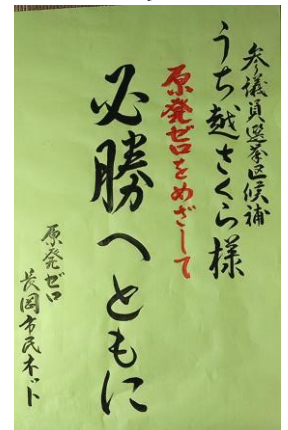 参議員選挙区候補
うち越さくら様
原発ゼロをめざして
必勝へともに
原発ゼロ
長岡市民ネット